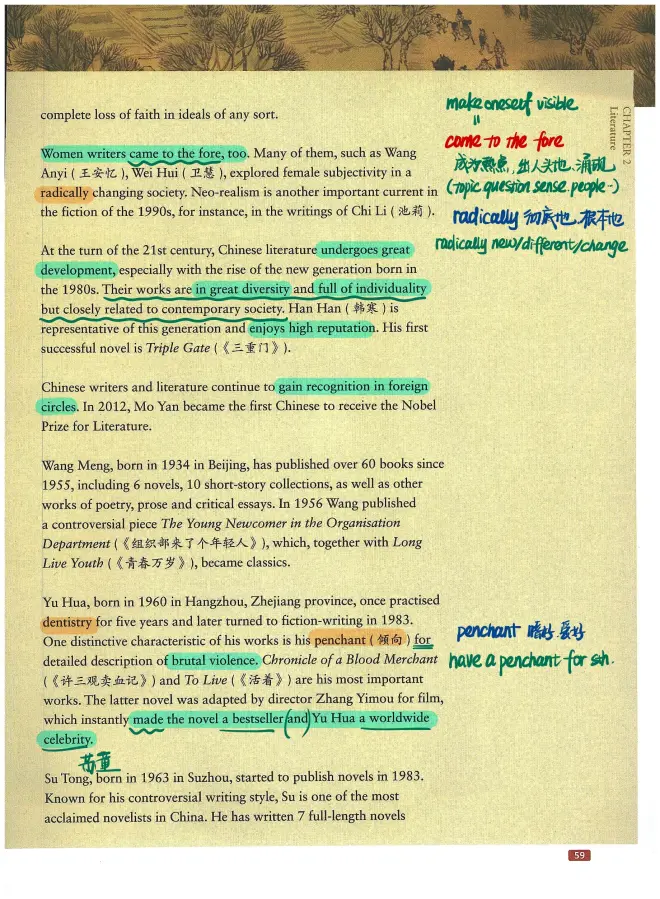 complete loss of faith in ideals of any sort.
Women writers came to the fore, too. Many of them, such as Wang
Anyi (王安忆), Wei Hui (卫慧), explored female subjectivity in a
radically changing society. Neo-realism is another important current in
the fiction of the 1990s, for instance, in the writings of Chi Li (池莉).
At the turn of the 21st century, Chinese literature undergoes great
development, especially with the rise of the new generation born in
the 1980s. Their works are in great diversity and full of individuality
but closely related to contemporary society. Han Han (韩寒) is
representative of this generation and enjoys high reputation. His first
successful novel is Triple Gate (《三重门》).
Chinese writers and literature continue to gain recognition in foreign
circles. In 2012, Mo Yan became the first Chinese to receive the Nobel
Prize for Literature.
Wang Meng, born in 1934 in Beijing, has published over 60 books since
1955, including 6 novels, 10 short-story collections, as well as other
works of poetry, prose and critical essays. In 1956 Wang published
a controversial piece The Young Newcomer in the Organisation
Department (《组织部来了个年轻人》), which, together with Long
Live Youth (《青春万岁》), became classics.
Yu Hua, born in 1960 in Hangzhou, Zhejiang province, once practised
dentistry for five years and later turned to fiction-writing in 1983.
One distinctive characteristic of his works is his penchant (倾向) for
detailed description of brutal violence. Chronicle of a Blood Merchant
(《许三观卖血记》) and To Live (《活着》) are his most important
works. The latter novel was adapted by director Zhang Yimou for film,
which instantly made the novel a bestseller (and) Yu Hua a worldwide
celebrity.
苏童
Su Tong, born in 1963 in Suzhou, started to publish novels in 1983.
Known for his controversial writing style, Su is one of the most
acclaimed novelists in China. He has written 7 full-length novels
make oneself visible
=
come to the fore
成为热点, 出人头地, 涌现
(topic question sense people~)
radically 彻底地、根本地
radically new/different/change
penchant 嗜好、爱好
have a penchant for sth.
CHAPTER 2
Literature
59